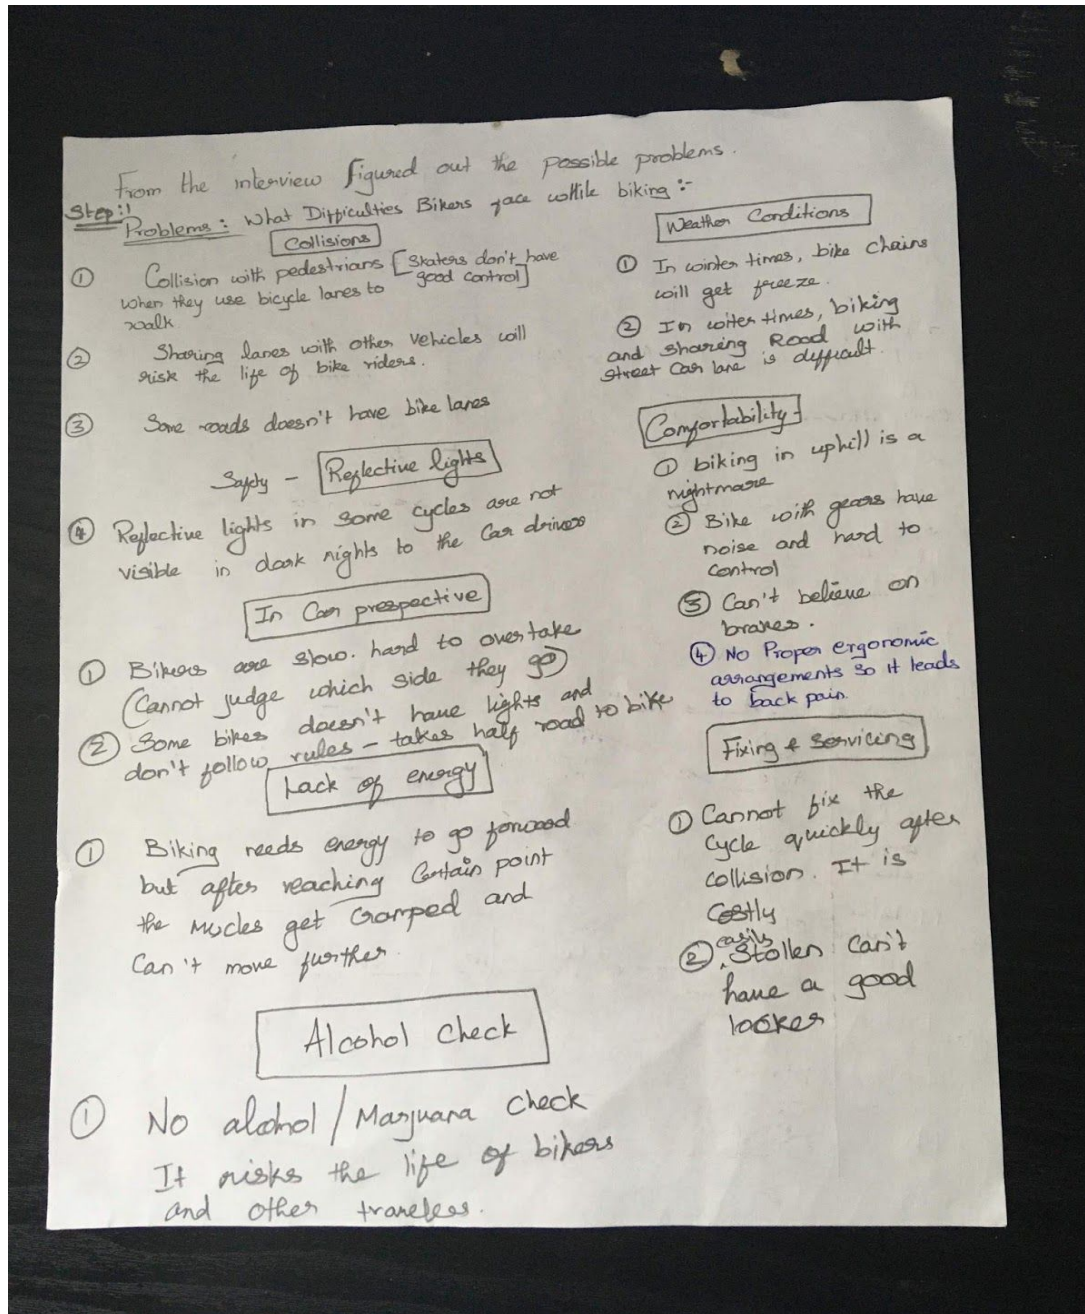 From the interview figured out the possible problems.
Step:1
Problems: What Difficulties Bikers face while biking :-
Collisions
① Collision with pedestrians [Skaters don't have
good control]
when they use bicycle lanes to
walk
② Sharing lanes with other vehicles will
risk the life of bike riders.
③ Some roads doesn't have bike lanes
Safty - Reflective lights
④ Reflective lights in some cycles are not
visible in dark nights to the Car drivers
In Car prespective
① Bikers are slow. hard to overtake
(Cannot judge which side they go)
② Some bikes doesn't have lights and
don't follow rules - takes half road to bike
Lack of energy
① Biking needs energy to go forward
but after reaching Certain point
the Mucles get Cramped and
Can't move further.
Alcohol Check
① No alcohol / Marjuana Check
It risks the life of bikers
and other
Weather Conditions
① In winter times, bike chains
will get freeze.
② In witer times, biking
and Sharing Road with
Street Car lane is difficult.
Comfortability -
① biking in uphill is a
nightmare
② Bike with gears have
noise and hard to
control
③ Can't believe on
brakes.
④ No Proper ergonomic
arrangements so it leads
to back pain.
Fixing & Servicing
① Cannot fix the
Cycle quickly after
collision. It is
Costly
② easily Stollen Can't
have a good
locker